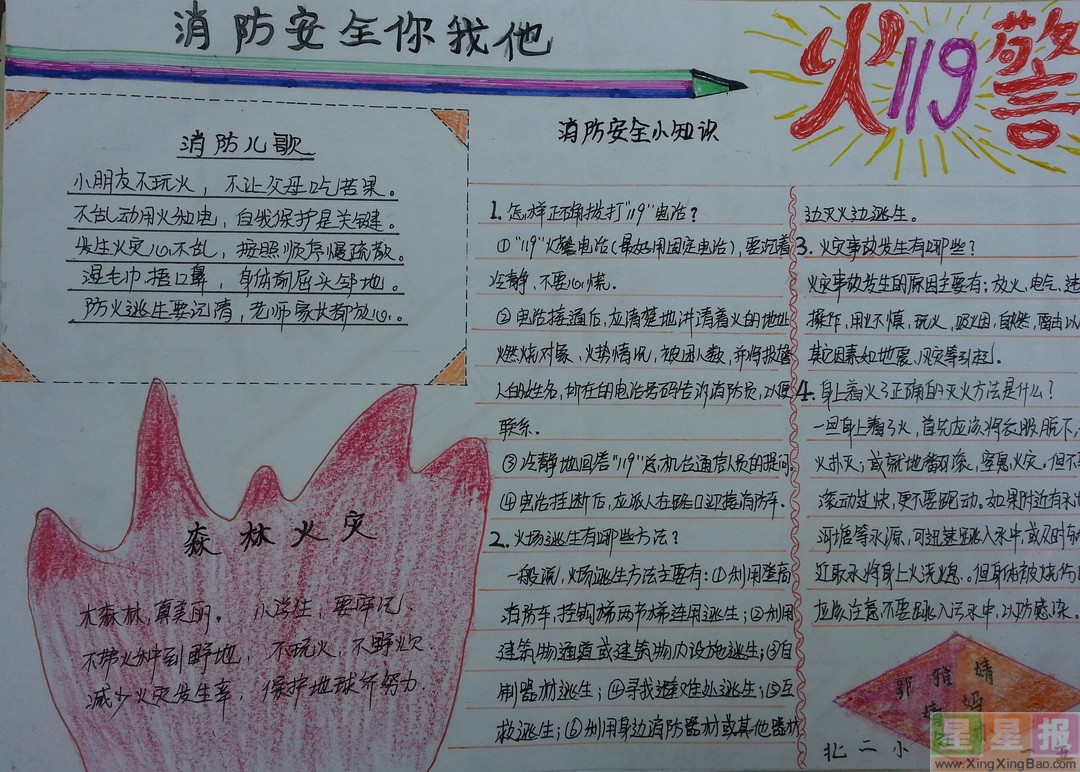 消防安全你我他
火119警
消防儿歌
小朋友不玩火，不让父母吃苦果。
不乱动用火和电，自我保护是关键。
发生火灾心不乱，按照顺序慢疏散。
湿毛巾捂口鼻，身体前屈头邻地。
防火逃生要沉清，老师家长都放心。
森林火灾
大森林，真美丽。小学生，要牢记。
不带火种到野地，不玩火，不野炊
减少火灾发生率，保护地球齐努力.
消防安全小知识
1.怎样正确拨打"119"电话？
①"119"火警电话(最好用固定电话)，要沉着
冷静，不要心慌。
②电话接通后，应清楚地讲清着火的地址
燃烧对象、火势情况，被困人数，并将报警
人的姓名，所在的电话号码告诉消防员，以便
联系。
③冷静地回答"119"总机台通信人员的提问。
④电话挂断后，应派人在路口迎接消防车.
2.火场逃生有哪些方法？
一般说，火场逃生方法主要有：①利用登高
消防车，挂钩梯两节梯连用逃生；②利用
建筑物通道或建筑物内设施逃生；③自
制器材逃生；④寻找避难处逃生；⑤互
救逃生；⑥利用身边消防器材或其他器材
边灭火边逃生。
3.火灾事故发生有哪些？
火灾事故发生的原因主要有；放火、电气、违
操作，用火不慎，玩火，吸烟，自燃，雷击以
其它因素如地震、风灾等引起。
4.身上着火了正确的灭火方法是什么？
一旦身上着了火，首先应该将衣服脱下，
火扑灭；或就地翻滚，窒息火灾。但不
滚动过快，更不要跑动。如果附近有水
河塘等水源，可迅速跳入水中，或及时
近取水将身上火浇熄。但身体被烧伤
应该注意不要跳入污水中，以防感染。
郭雅婧
婧妈
北二小
星星报
www.XingXingBao.com